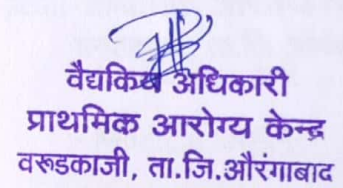 वैद्यकिय अधिकारी
प्राथमिक आरोग्य केन्द्र
वरूडकाजी, ता.जि.औरंगाबाद